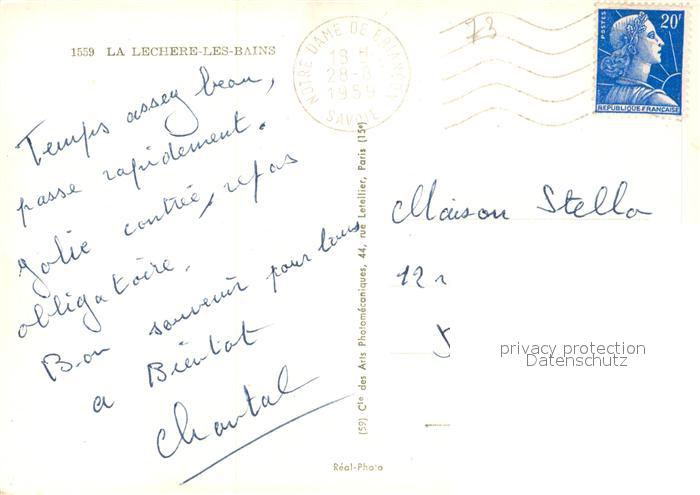 1559 LA LECHERE-LES-BAINS
Temps assez beau,
passe rapidement.
Jolie contrée, repas
obligatoire.
Bon souvenir pour tous
a Bientot
Chantal
(59) Cie des Arts Photomécaniques, 44, rue Letellier, Paris (15e)
Réal-Photo
NOTRE DAME DE
18 H
28-8
1959
SAVOIE
73
POSTES
20F
REPUBLIQUE FRANÇAISE
Maison Stella
12
privacy protection
Datenschutz